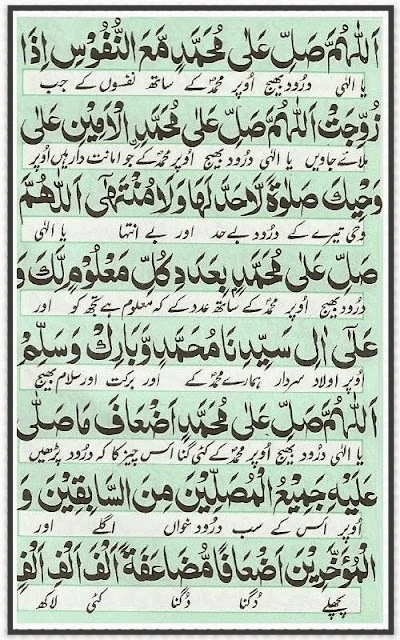 اَللّٰهُمَّ صَلِّ عَلٰى مُحَمَّدٍ مَّعَ النُّفُوْسِ اِذَا
یا الٰہی درُود بھیج اُوپر محمدؐ کے ساتھ نفسوں کے جب
زُوِّجَتْ اَللّٰهُمَّ صَلِّ عَلٰى مُحَمَّدِ ِالْاَمِيْنِ عَلٰى
ملائے جاویں یا الٰہی درُود بھیج اُوپر محمدؐ کے جو امانت دار ہیں اُوپر
وَحْيِكَ صَلٰوةً لَّاحَدَّ لَهَا وَلَا مُنْتَهٰى اَللّٰهُمَّ
وحی تیرے کے درُود بے حد اور بے انتہا یا الٰہی
صَلِّ عَلٰى مُحَمَّدٍ بِۢعَدَدِ كُلِّ مَعْلُوْمٍ لَّكَ وَ
درُود بھیج اُوپر محمدؐ کے ساتھ عدد کے کہ معلوم ہے تجھ کو اور
عَلٰٓى اٰلِ سَيِّدِنَا مُحَمَّدٍ وَّبَارِكْ وَسَلِّمْ
اُوپر اولاد سردار ہمارے محمدؐ کے اور برکت اور سلام بھیج
اَللّٰهُمَّ صَلِّ عَلٰى مُحَمَّدٍ اَضْعَافَ مَا صَلّٰى
یا الٰہی درُود بھیج اُوپر محمدؐ کے کئی گنا اس چیز کا کہ درُود پڑھیں
عَلَيْهِ جَمِيْعُ الْمُصَلِّيْنَ مِنَ السَّابِقِيْنَ وَ
اُوپر اس کے سب درُود خواں اگلے اور
الْمُؤَخَّرِيْنَ اَضْعَافًا مُّضَاعَفَةً اَلْفَ اَلْفِ اَلْفٍ
پچھلے دُگنا دُگنا کئی لاکھ